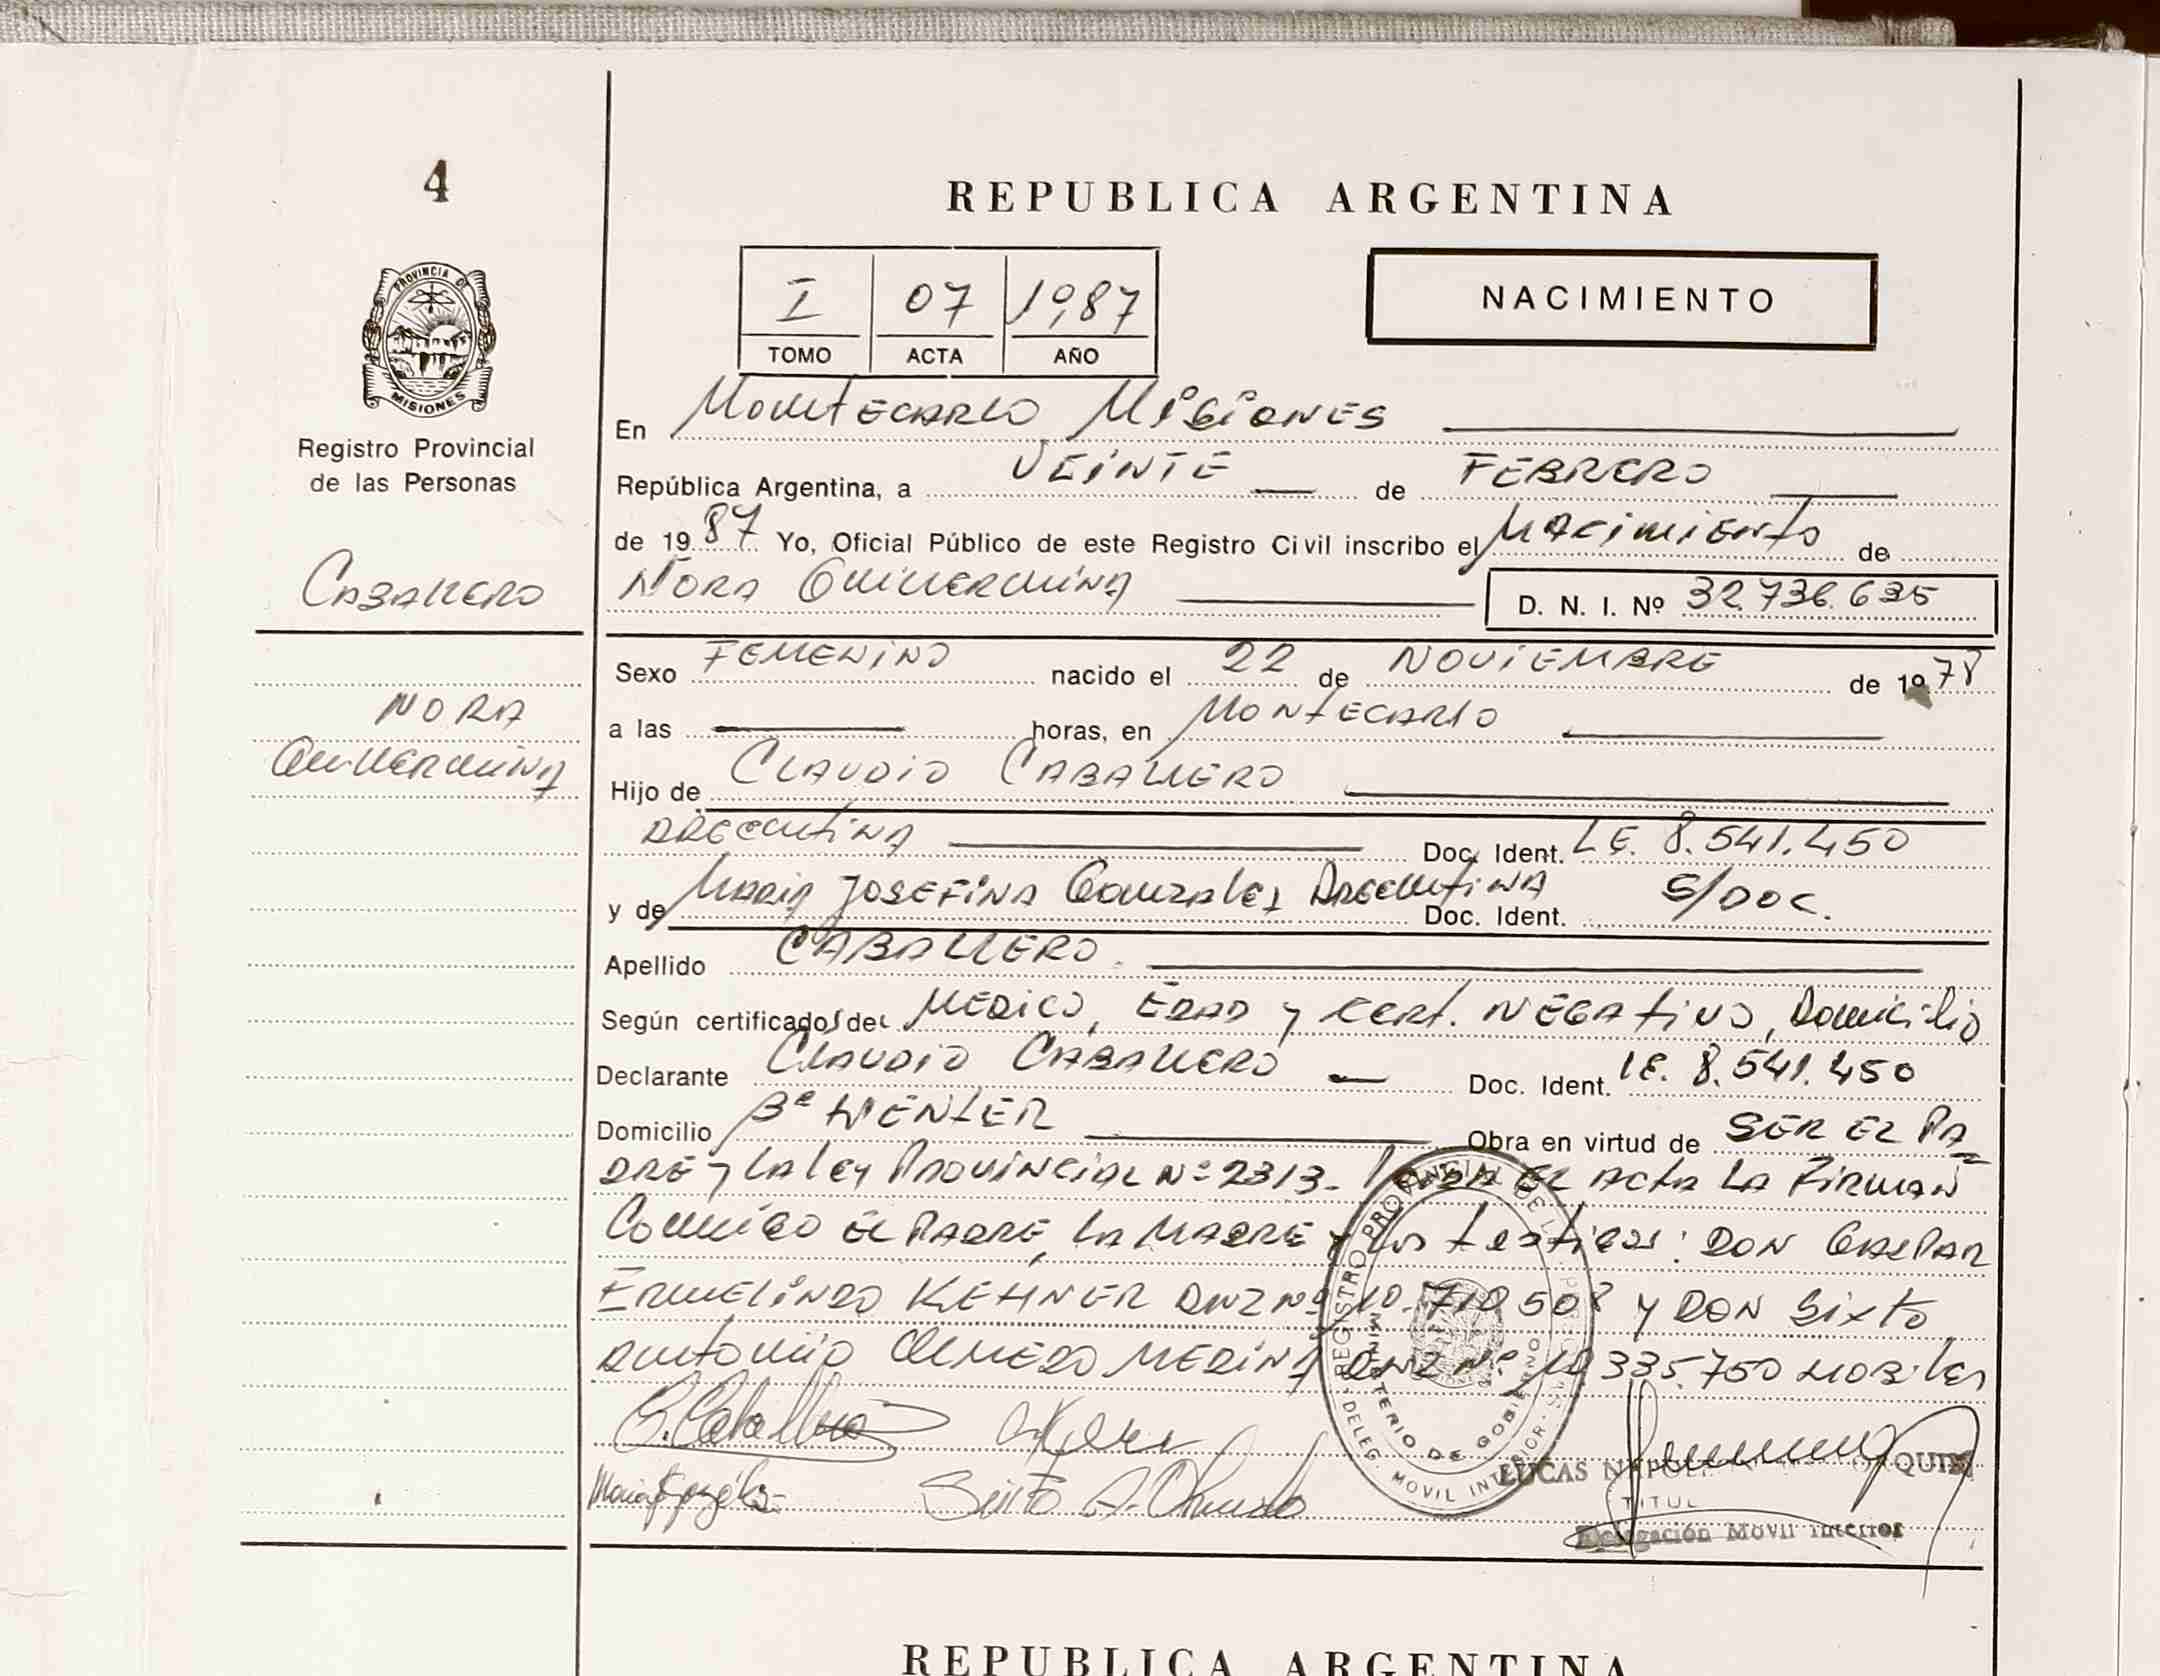 4
REPUBLICA ARGENTINA
I 07 1987
TOMO ACTA AÑO
NACIMIENTO
PROVINCIA DE
MISIONES
Registro Provincial
de las Personas
CABALLERO
NORA
GUILLERMINA
En MONTECARLO MISIONES
República Argentina, a VEINTE de FEBRERO
de 1987 Yo, Oficial Público de este Registro Civil inscribo el NACIMIENTO de
NORA GUILLERMINA D. N. I. Nº 32.736.635
Sexo FEMENINO nacido el 22 de NOVIEMBRE de 1978
a las horas, en MONTECARLO
Hijo de CLAUDIO CABALLERO
ARGENTINA Doc. Ident. L.E. 8.541.450
y de MARIA JOSEFINA GONZALEZ ARGENTINA Doc. Ident. S/DOC.
Apellido CABALLERO
Según certificado/s de MEDICO, EDAD y CERT. NEGATIVO, DOMICILIO
Declarante CLAUDIO CABALLERO Doc. Ident. LE. 8.541.450
Domicilio Bº WENTER Obra en virtud de SER EL PA
DRE y LA LEY PROVINCIAL Nº 2313- EL ACTA LA FIRMAN
CONMIGO EL PADRE, LA MADRE y LOS TESTIGOS: DON GASPAR
ERMELINDO KEHNER DNI Nº 10.710.508 y DON SIXTO
ANTONIO OLMEDO MEDINA DNI Nº 10.335.750 HOBILES
C. Caballero
Maria J González Sixto A. Olmedo
REGISTRO PROVINCIAL DE
MINISTERIO DE GOBIERNO
DELEG. MOVIL INTERIOR
LUCAS
TITUL
Delegación Movil Interior
REPUBLICA ARGENTINA